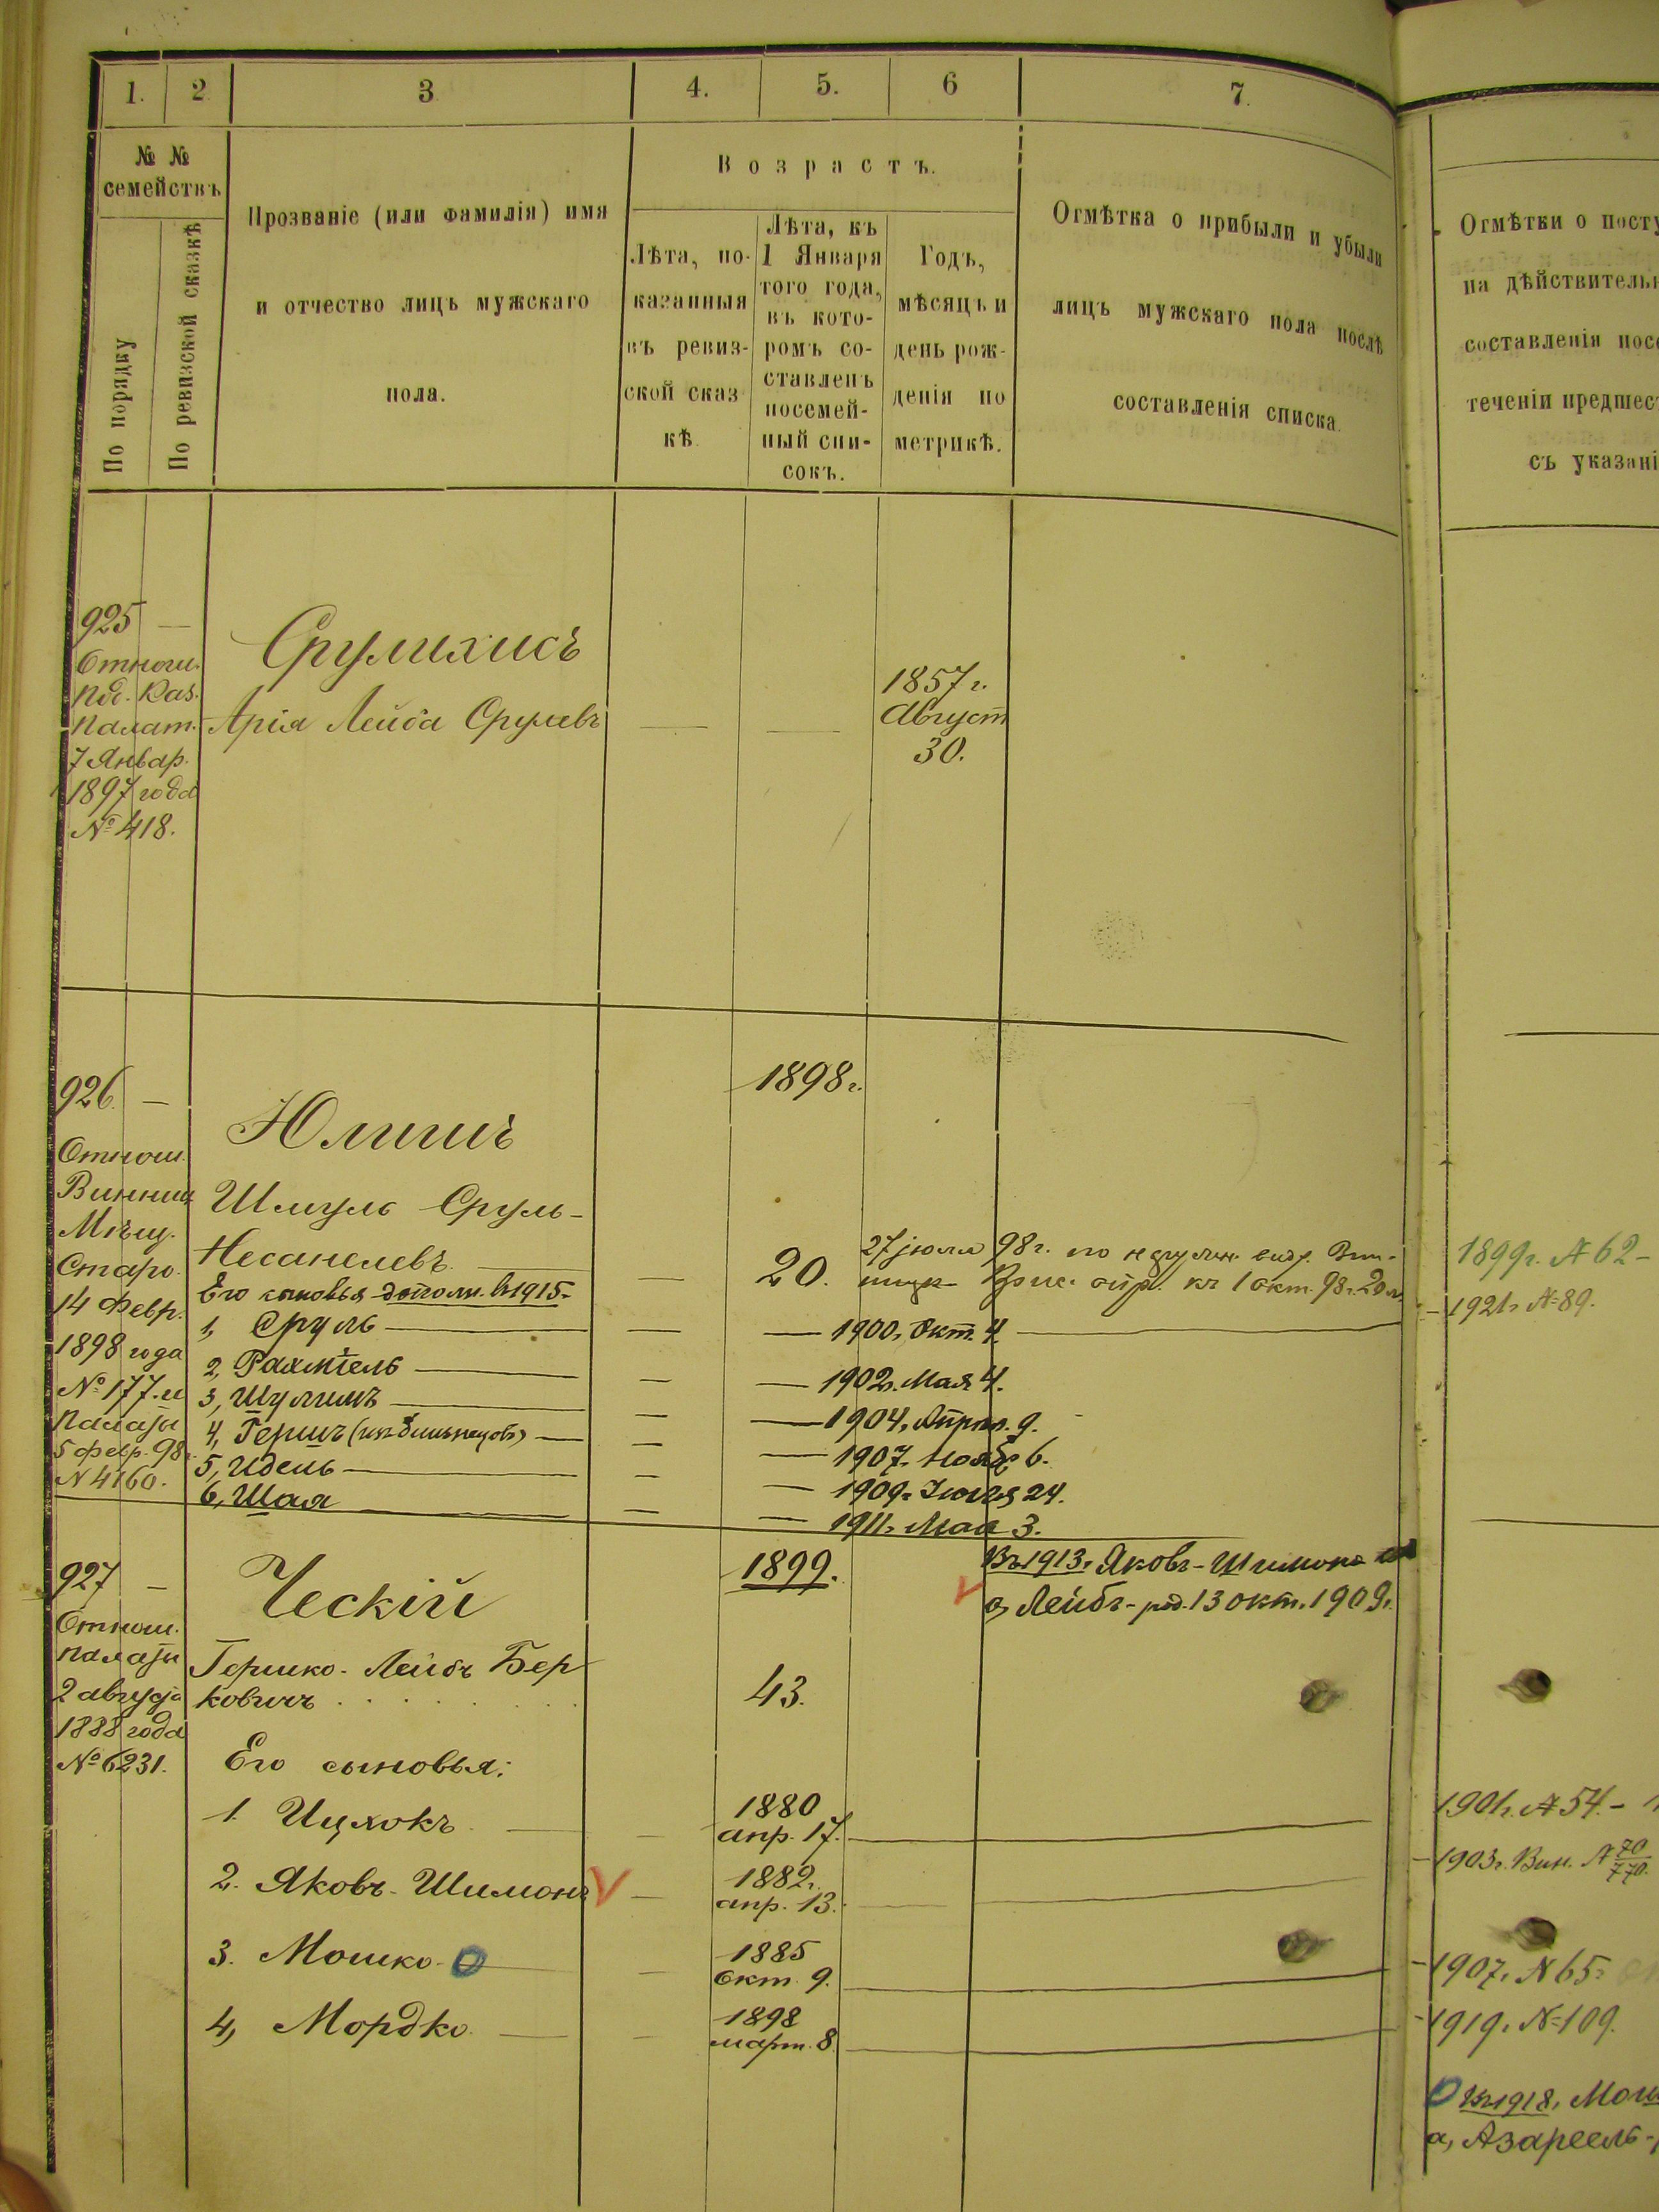 1. 2 3 4. 5. 6 7.
№ №
семействъ
По порядку
По ревизской сказкѣ
Прозваніе (или фамилія) имя
и отчество лицъ мужскаго
пола.
Возрастъ.
Лѣта, по-
казанныя
въ ревиз-
ской сказ-
кѣ.
Лѣта, къ
1 Января
того года,
въ кото-
ромъ со-
ставленъ
посемей-
ный спи-
сокъ.
Годъ,
мѣсяцъ и
день рож-
денія по
метрикѣ.
Отмѣтка о прибыли и убыли
лицъ мужскаго пола послѣ
составленія списка.
Отмѣтки о посту
на дѣйствительн
составленія посе
теченіи предшест
съ указані
925 —
Отнош.
Под. Каз.
Палат.
7 Январ.
1897 года
№ 418.
Срулихисъ
Арія Лейба Срулевъ
1857 г.
Август
30.
926. —
Отнош.
Винниц
Мѣщ.
Старо.
14 Февр.
1898 года
№ 177. и
Палаты
5 Февр. 98 г.
N 4160.
1898 г.
Юлишъ
Шмуль Сруль-
Несанелевъ.
20.
27 іюля 98 г. по
къ 1 окт. 98 г. 20 л.
1899 г. № 62 -
Его сыновья дополн. въ 1915 г.
- 1921 г. № 89.
1, Сруль — 1900 г. Окт. 4
2, Рахмiель — 1902 г. Мая 4.
3, Шулимъ — 1904 г. Апрѣл. 9.
4, Гершъ — 1907 г. Нояб. 6.
5, Идель — 1909 г. Іюля 24.
6, Шая — 1911 г. Мая 3.
927 —
Отнош.
Палаты
2 августа
1888 года
№ 6231.
1899.
Ческій
Въ 1913 г. Яковъ-Шимона
а, Лейбъ - род. 13 окт. 1909 г.
Гершко-Лейбъ Бер
ковичъ
43.
Его сыновья:
1. Ицхокъ 1880
апр. 17.
1901 г. № 54. -
2. Яковъ-Шимонъ V 1882 г.
апр. 13.
- 1903 г. Вин. № 70/770.
3. Мошко 1885
Окт. 9.
- 1907 г. № 65
4, Мордко 1898
март. 8
- 1919 г. № 109.
Въ 1918 г. Мош
а, Азареель -